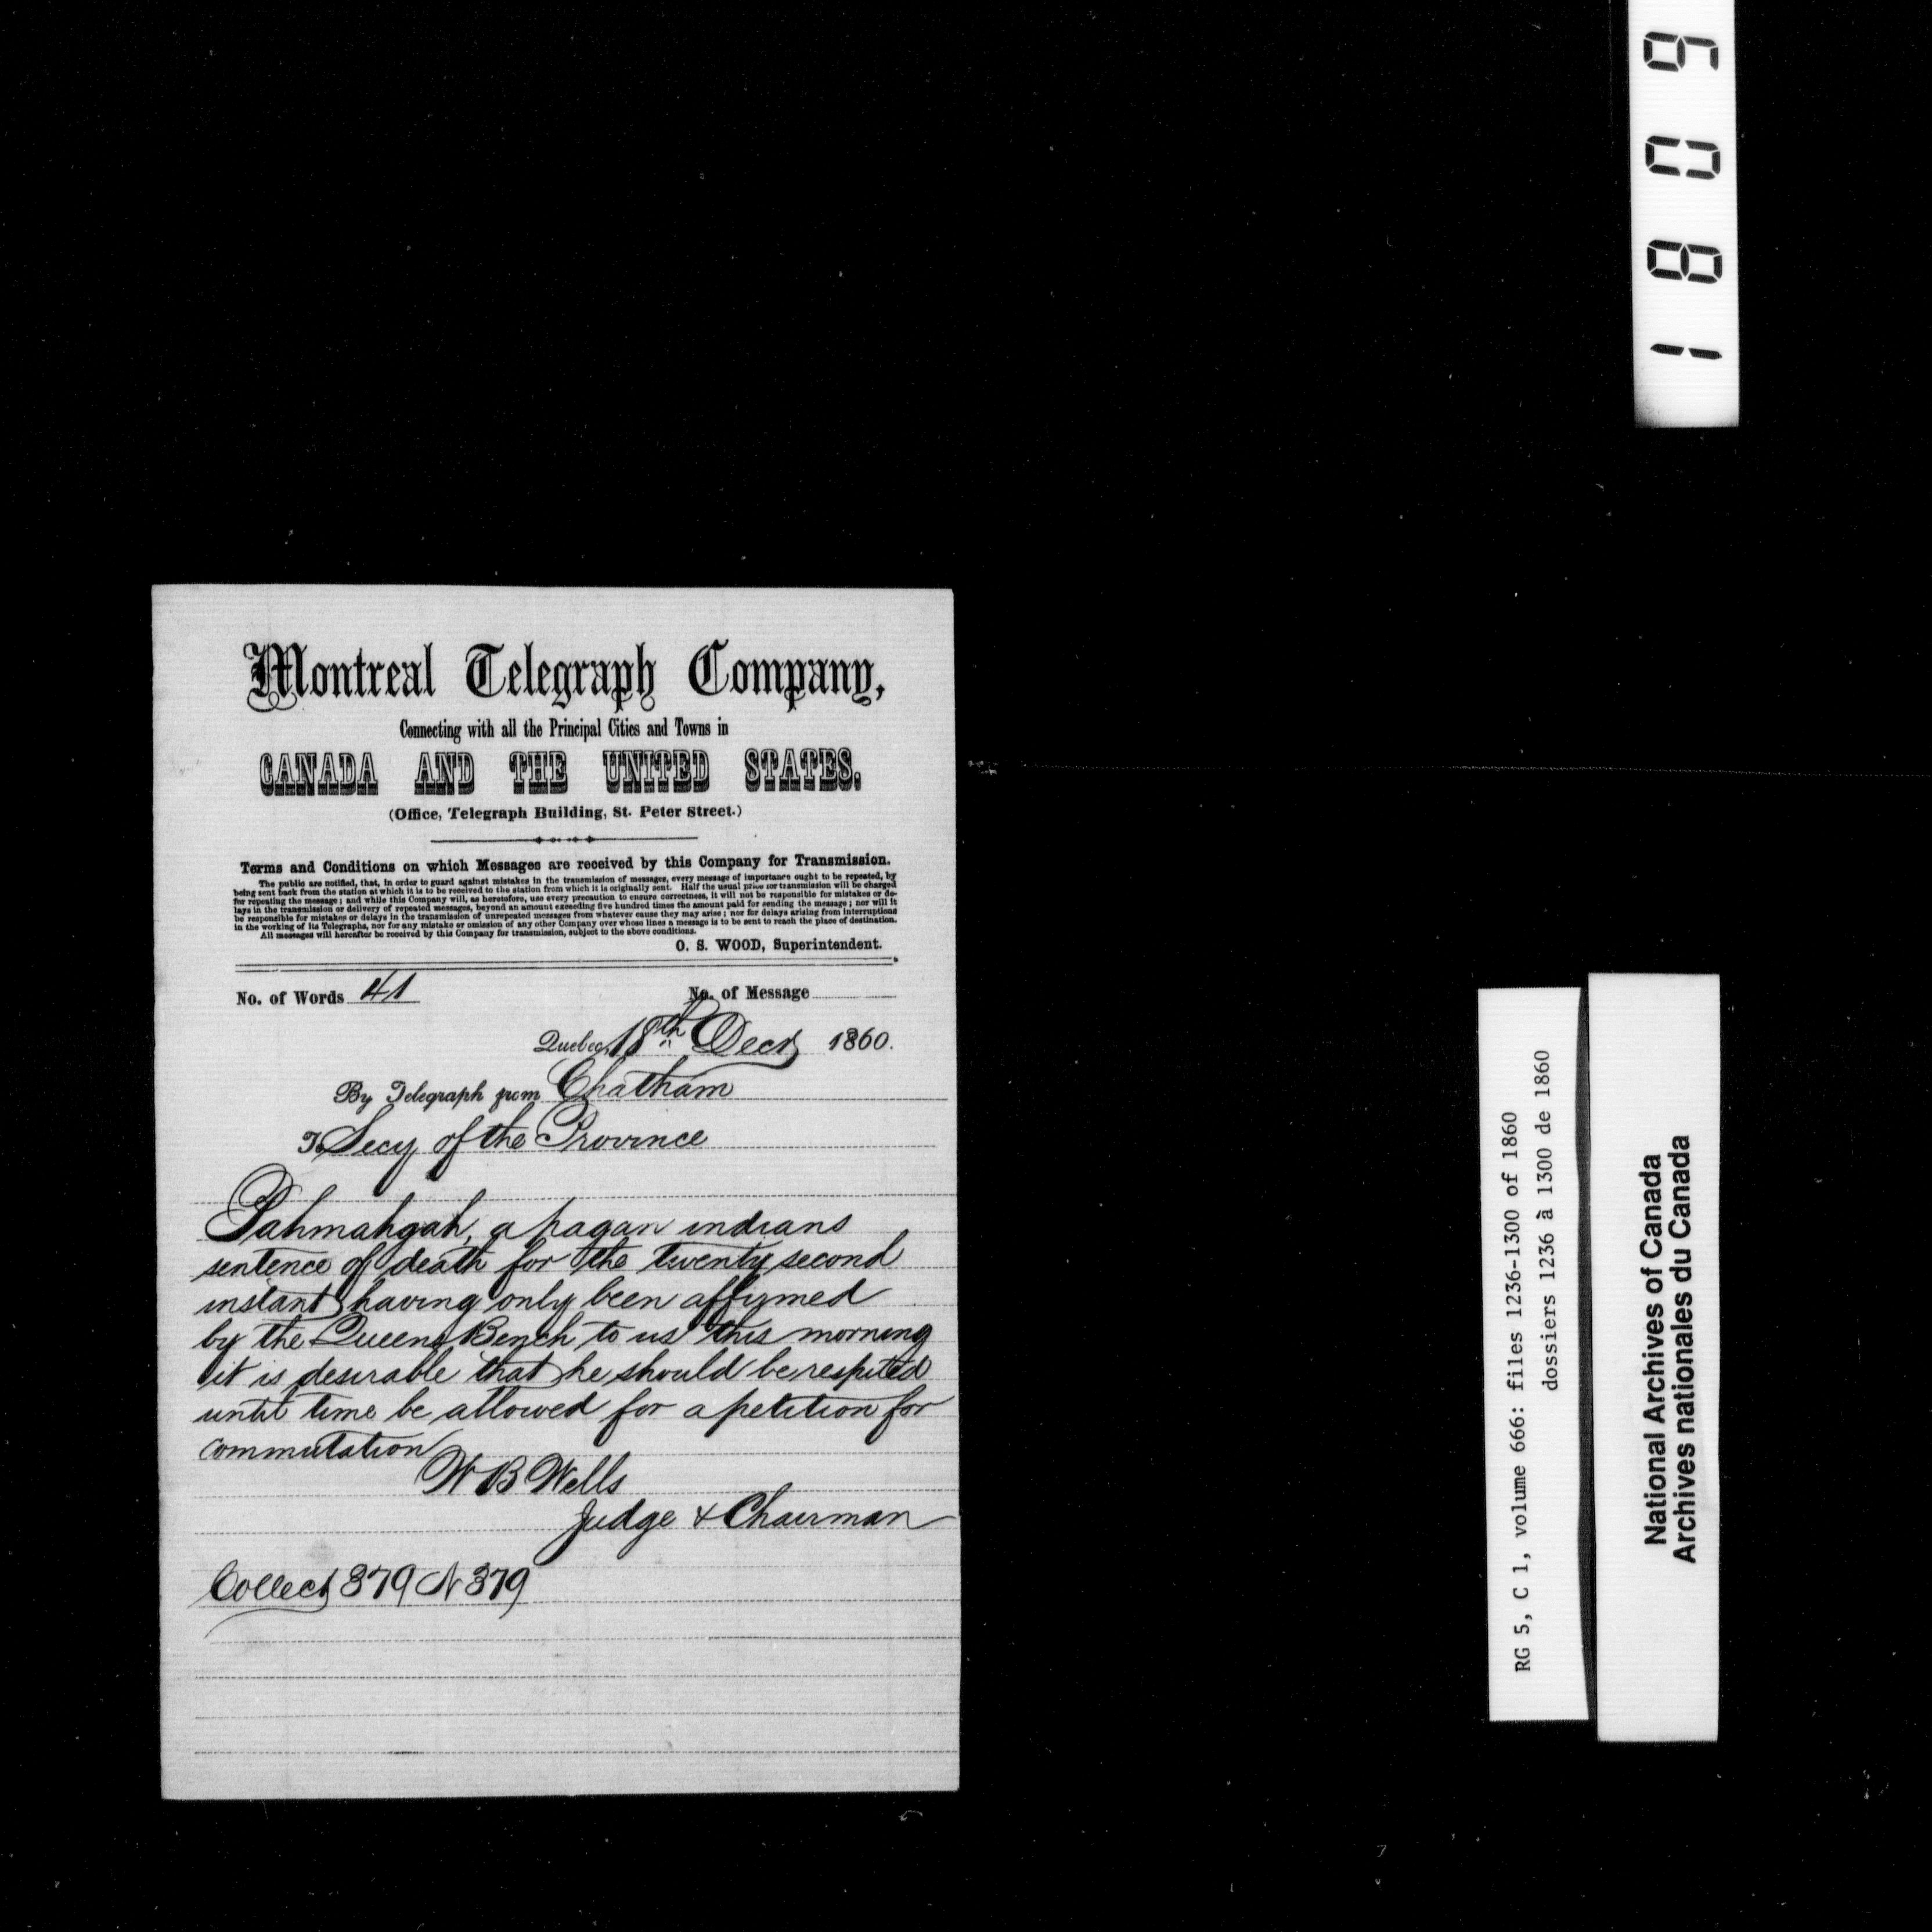 Montreal Telegraph Company,
Connecting with all the Principal Cities and Towns in
CANADA AND THE UNITED STATES.
(Office, Telegraph Building, St. Peter Street.)
Terms and Conditions on which Messages are received by this Company for Transmission.
The public are notified, that, in order to guard against mistakes in the transmission of messages, every message of importance ought to be repeated, by
being sent back from the station at which it is to be received to the station from which it is originally sent. Half the usual price for transmission will be charged
for repeating the message; and while this Company will, as heretofore, use every precaution to ensure correctness, it will not be responsible for mistakes or de-
lays in the transmission or delivery of repeated messages, beyond an amount exceeding five hundred times the amount paid for sending the message; nor will it
be responsible for mistakes or delays in the transmission of unrepeated messages from whatever cause they may arise; nor for delays arising from interruptions
in the working of its Telegraphs, nor for any mistake or omission of any other Company over whose lines a message is to be sent to reach the place of destination.
All messages will hereafter be received by this Company for transmission, subject to the above conditions.
O. S. WOOD, Superintendent.
No. of Words 41 No. of Message
Quebec, 18th Decr 1860.
By Telegraph from Chatham
To Secy of the Province
Pahmahgah, a pagan indians
sentence of death for the twenty second
instant having only been affirmed
by the Queens Bench to us this morning
it is desirable that he should be respited
until time be allowed for a petition for
commutation
W B Wells
Judge & Chairman
Collect 379 N 379
1809
RG 5, C 1, volume 666: files 1236-1300 of 1860
dossiers 1236 à 1300 de 1860
National Archives of Canada
Archives nationales du Canada